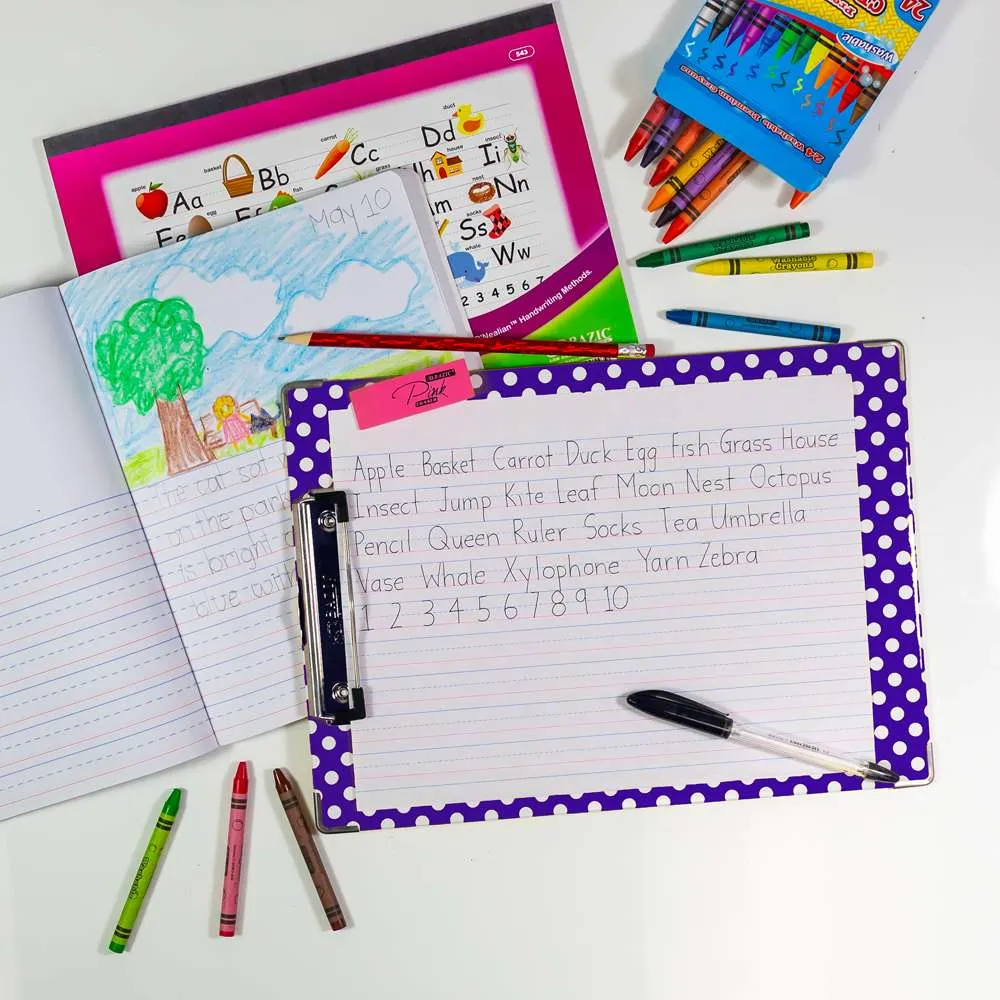 24
Washable
24 Washable Premium Crayons
543
duct
carrot
Dd
insect
basket
Cc
house
Ii
apple
Bb
grass
Aa
egg
fish
nest
Nn
socks
Ss
whale
Ww
2 3 4 5 6 7
Nealian™ Handwriting Methods.
May 10
Washable
Crayons
BAZIC
Pink
ERASER
Apple Basket Carrot Duck Egg Fish Grass House
Insect Jump Kite Leaf Moon Nest Octopus
Pencil Queen Ruler Socks Tea Umbrella
Vase Whale Xylophone Yarn Zebra
1 2 3 4 5 6 7 8 9 10
on the park
is bright
blue with